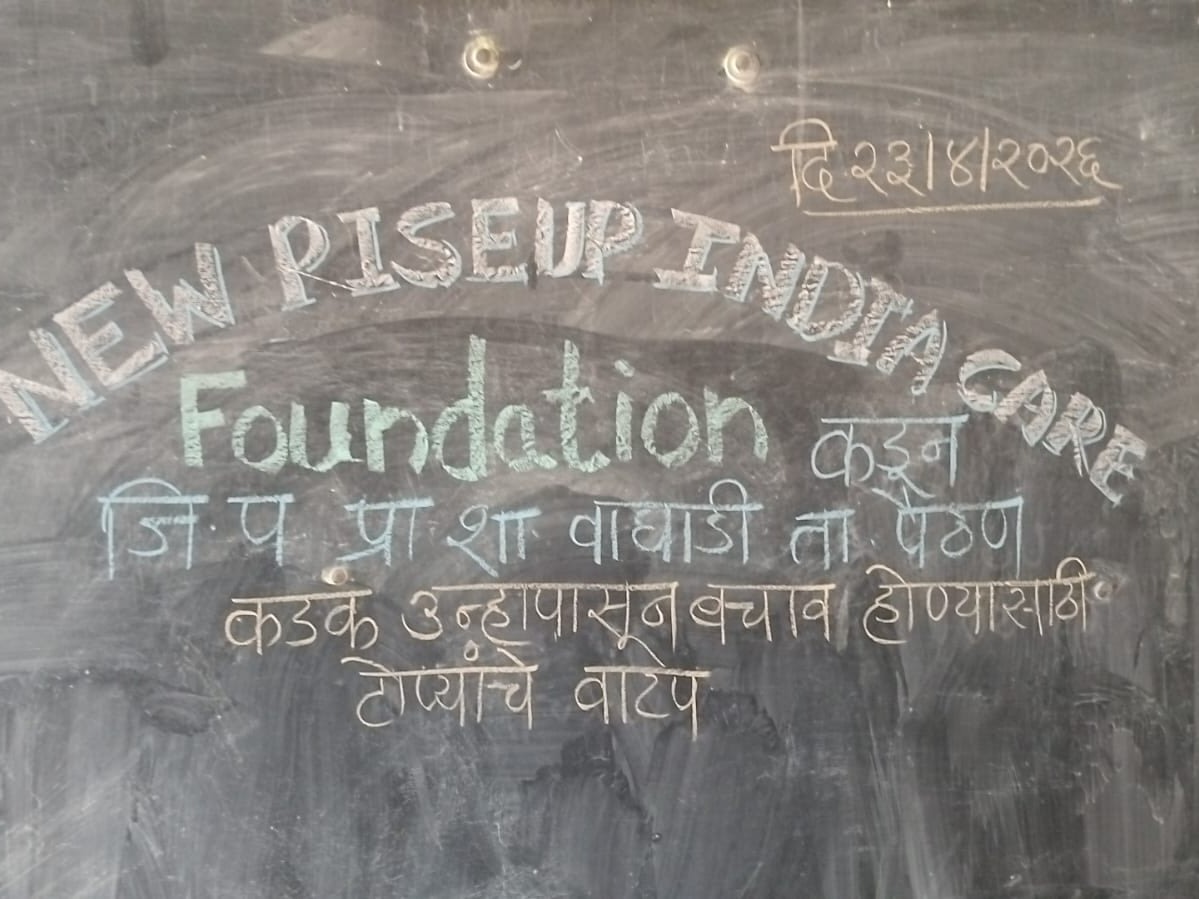 दि. २३/४/२०२६
NEW RISEUP INDIA CARE
Foundation कडून
जि. प. प्रा. शा. वाघाडी ता. पैठण
कडक उन्हापासून बचाव होण्यासाठी
टोप्यांचे वाटप